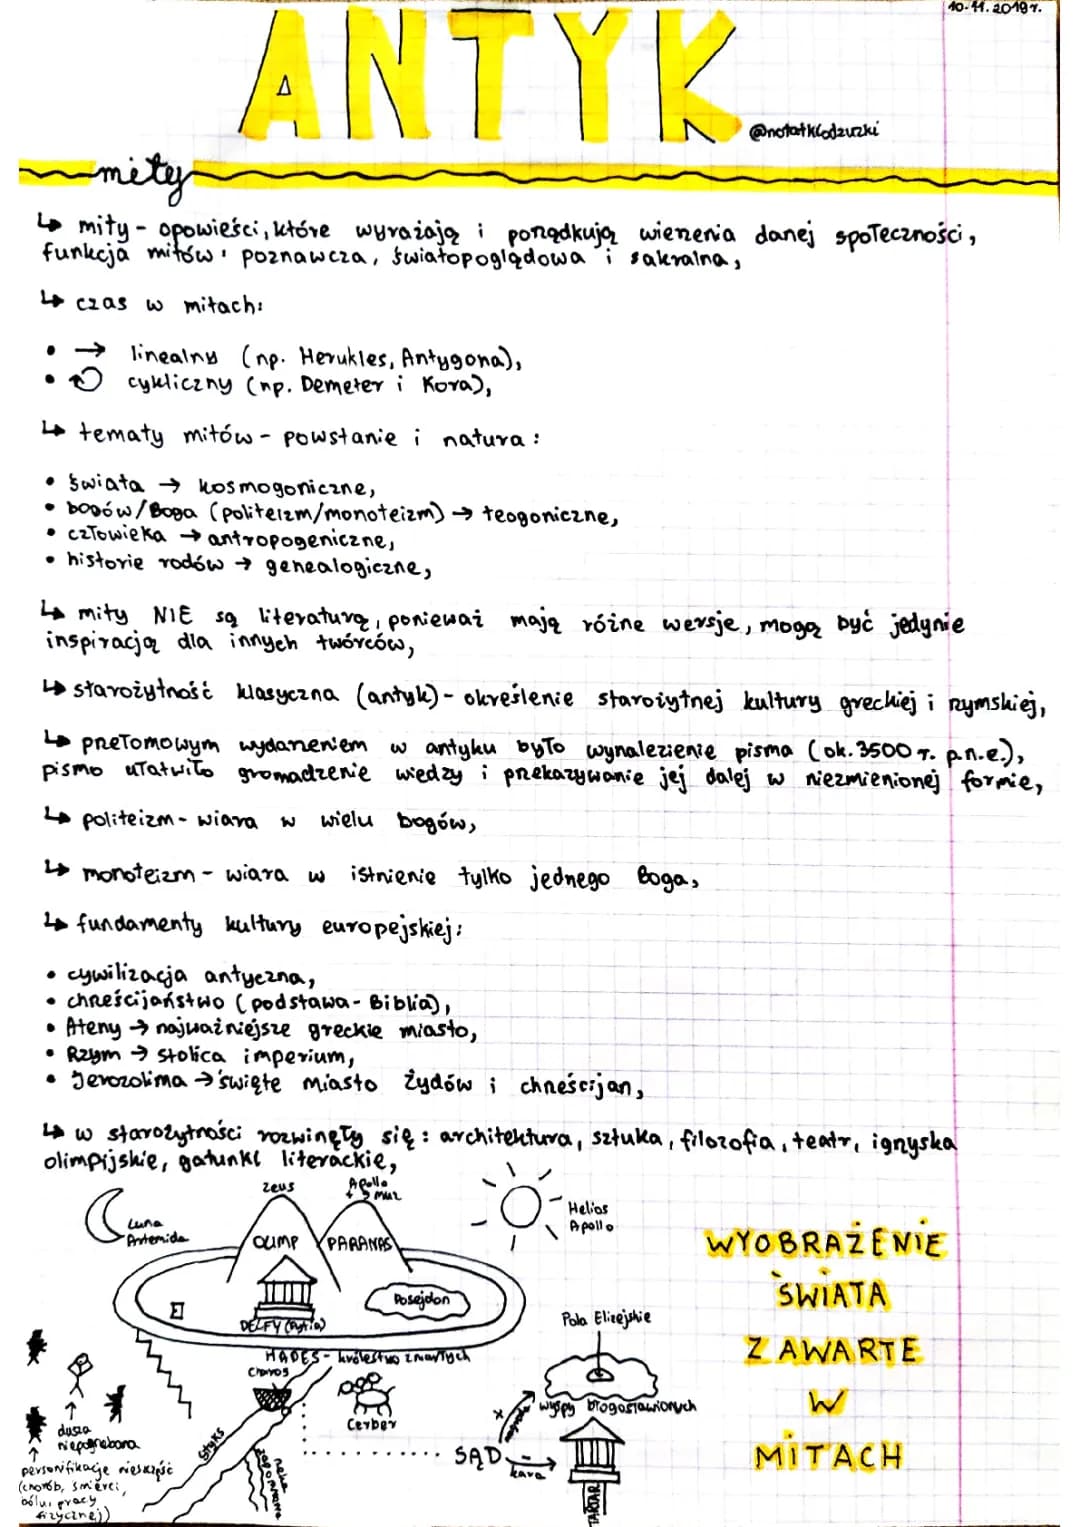 10.11.2019 r.
ANTYK
@notatkiodzuzki
mity
↳ mity - opowieści, które wyrażają i porządkują wierzenia danej społeczności,
funkcja mitów: poznawcza, światopoglądowa i sakralna,
↳ czas w mitach:
• → linealny (np. Herukles, Antygona),
• cykliczny (np. Demeter i Kora),
↳ tematy mitów - powstanie i natura:
• świata → kosmogoniczne,
• bogów/Boga (politeizm/monoteizm) → teogoniczne,
• człowieka → antropogeniczne,
• historie rodów → genealogiczne,
↳ mity NIE są literaturą, ponieważ mają różne wersje, mogą być jedynie
inspiracją dla innych twórców,
↳ starożytność klasyczna (antyk) - określenie starożytnej kultury greckiej i rzymskiej,
↳ przełomowym wydarzeniem w antyku było wynalezienie pisma (ok. 3500 r. p.n.e.),
pismo ułatwiło gromadzenie wiedzy i przekazywanie jej dalej w niezmienionej formie,
↳ politeizm - wiara w wielu bogów,
↳ monoteizm - wiara w istnienie tylko jednego Boga,
↳ fundamenty kultury europejskiej:
• cywilizacja antyczna,
• chrześcijaństwo (podstawa - Biblia),
• Ateny → najważniejsze greckie miasto,
• Rzym → stolica imperium,
• Jerozolima → święte miasto Żydów i chrześcijan,
↳ w starożytności rozwinęły się: architektura, sztuka, filozofia, teatr, igrzyska
olimpijskie, gatunki literackie,
Zeus
Apollo
+ 9 muz
Luna
Artemida
OLIMP
PARANAS
Helios
Apollo
Posejdon
DELFY (Pytia)
HADES - królestwo zmarłych
Charos
Cerber
Styks
rzeka
zapomnienia
dusza
niepogrzebana
personifikacje nieszczęść
(chorób, śmierci,
bólu, pracy
fizycznej)
Pola Elizejskie
wyspy błogosławionych
SĄD
nagroda
kara
TARTAR
WYOBRAŻENIE
ŚWIATA
ZAWARTE
W
MITACH